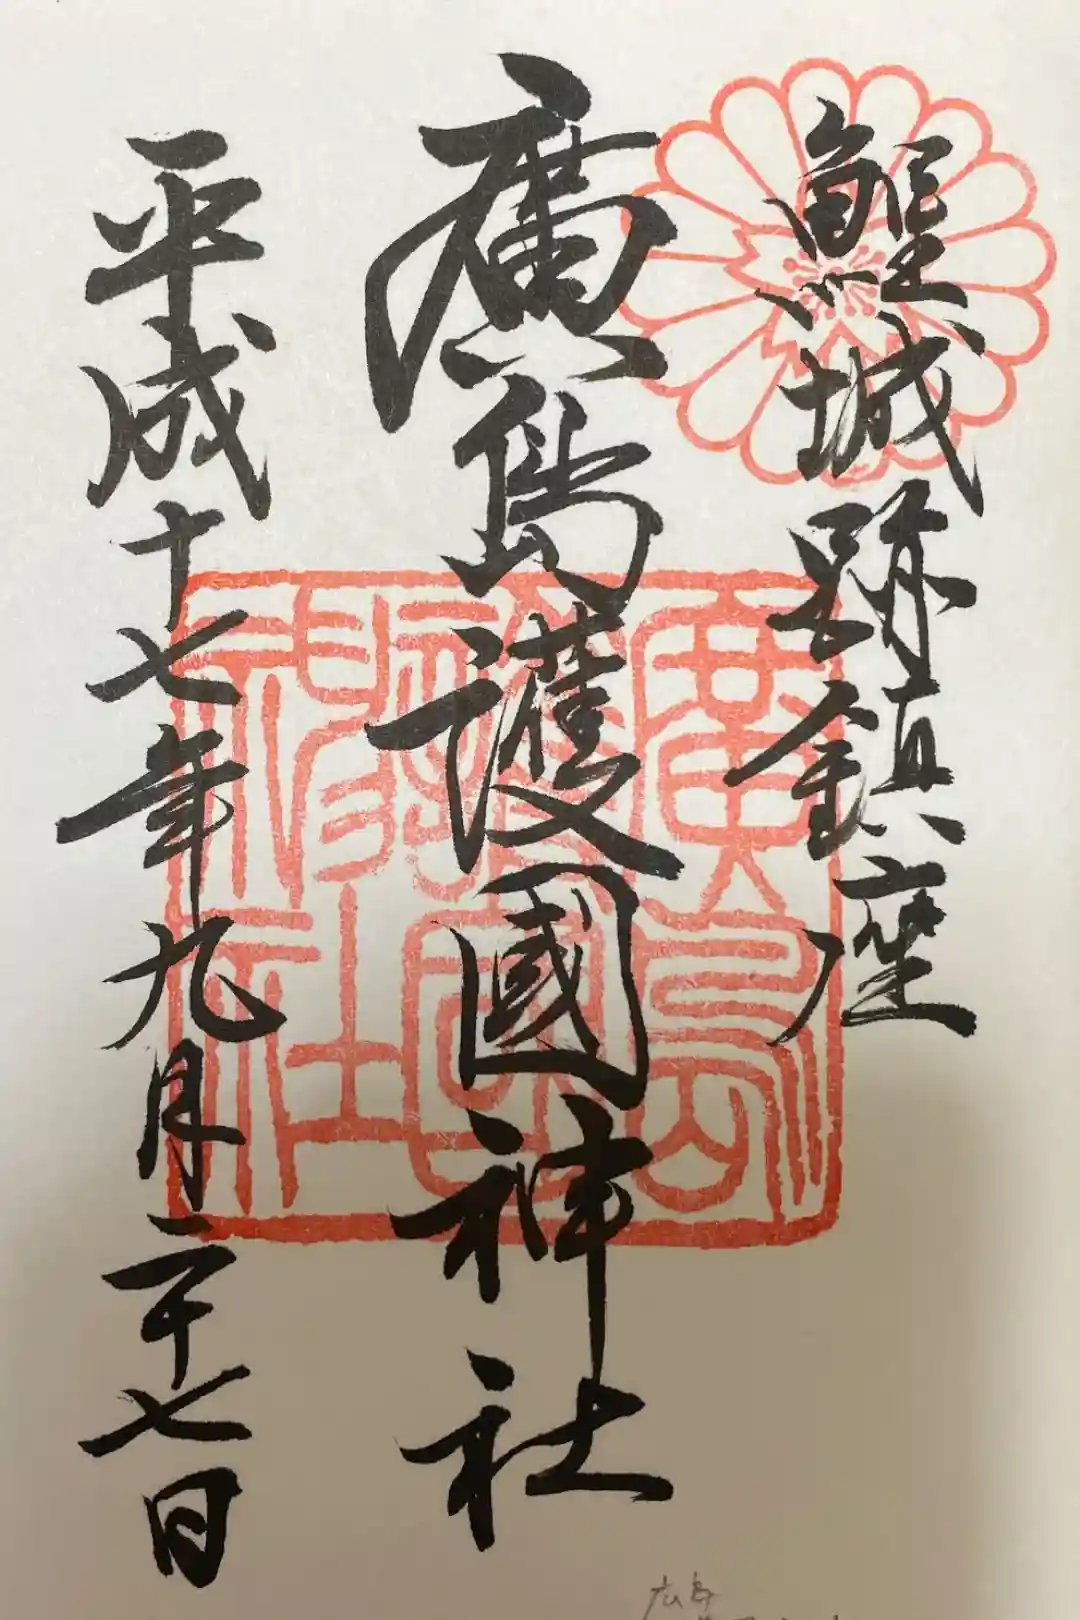 鯉城跡鎮座
廣島護國神社
平成十七年九月二十七日
廣島
護國
神社
広島